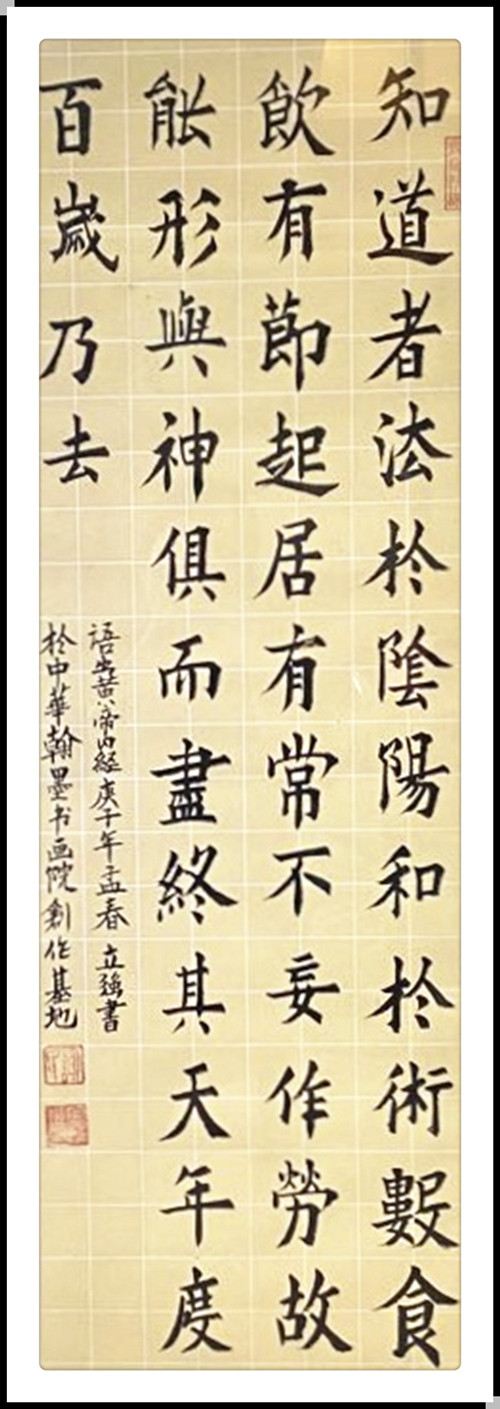 知道者法於陰陽和於術數食
飲有節起居有常不妄作勞故
能形與神俱而盡終其天年度
百歲乃去
語出黄帝内經庚子年孟春立強書
於中華翰墨书画院創作基地